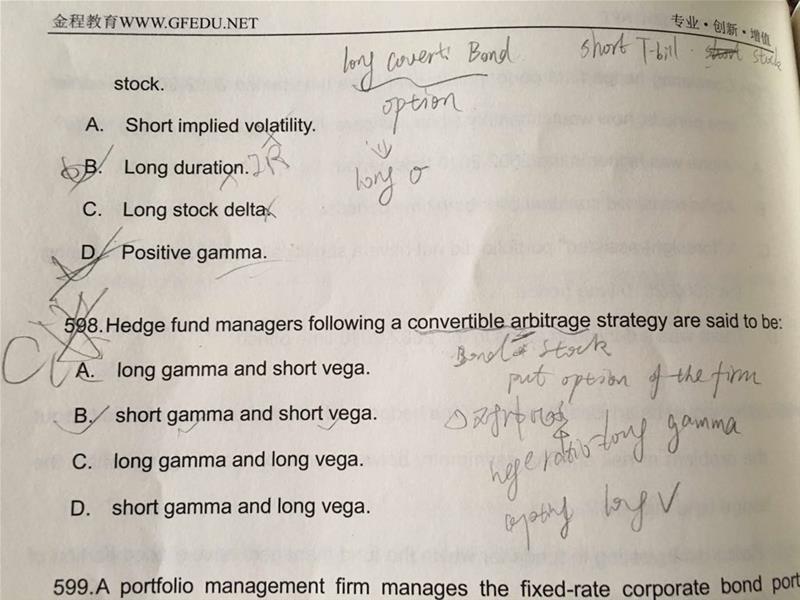 金程教育WWW.GFEDU.NET
专业·创新·增值
long coverti Bond
short T-bill stock
stock.
option
A. Short implied volatility.
B. Long duration. IR
long σ
C. Long stock delta.
D. Positive gamma.
598.Hedge fund managers following a convertible arbitrage strategy are said to be:
Bond stock
A. long gamma and short vega.
put option of the firm
B. short gamma and short vega.
long gamma
C. long gamma and long vega.
long V
D. short gamma and long vega.
599.A portfolio management firm manages the fixed-rate corporate bond port